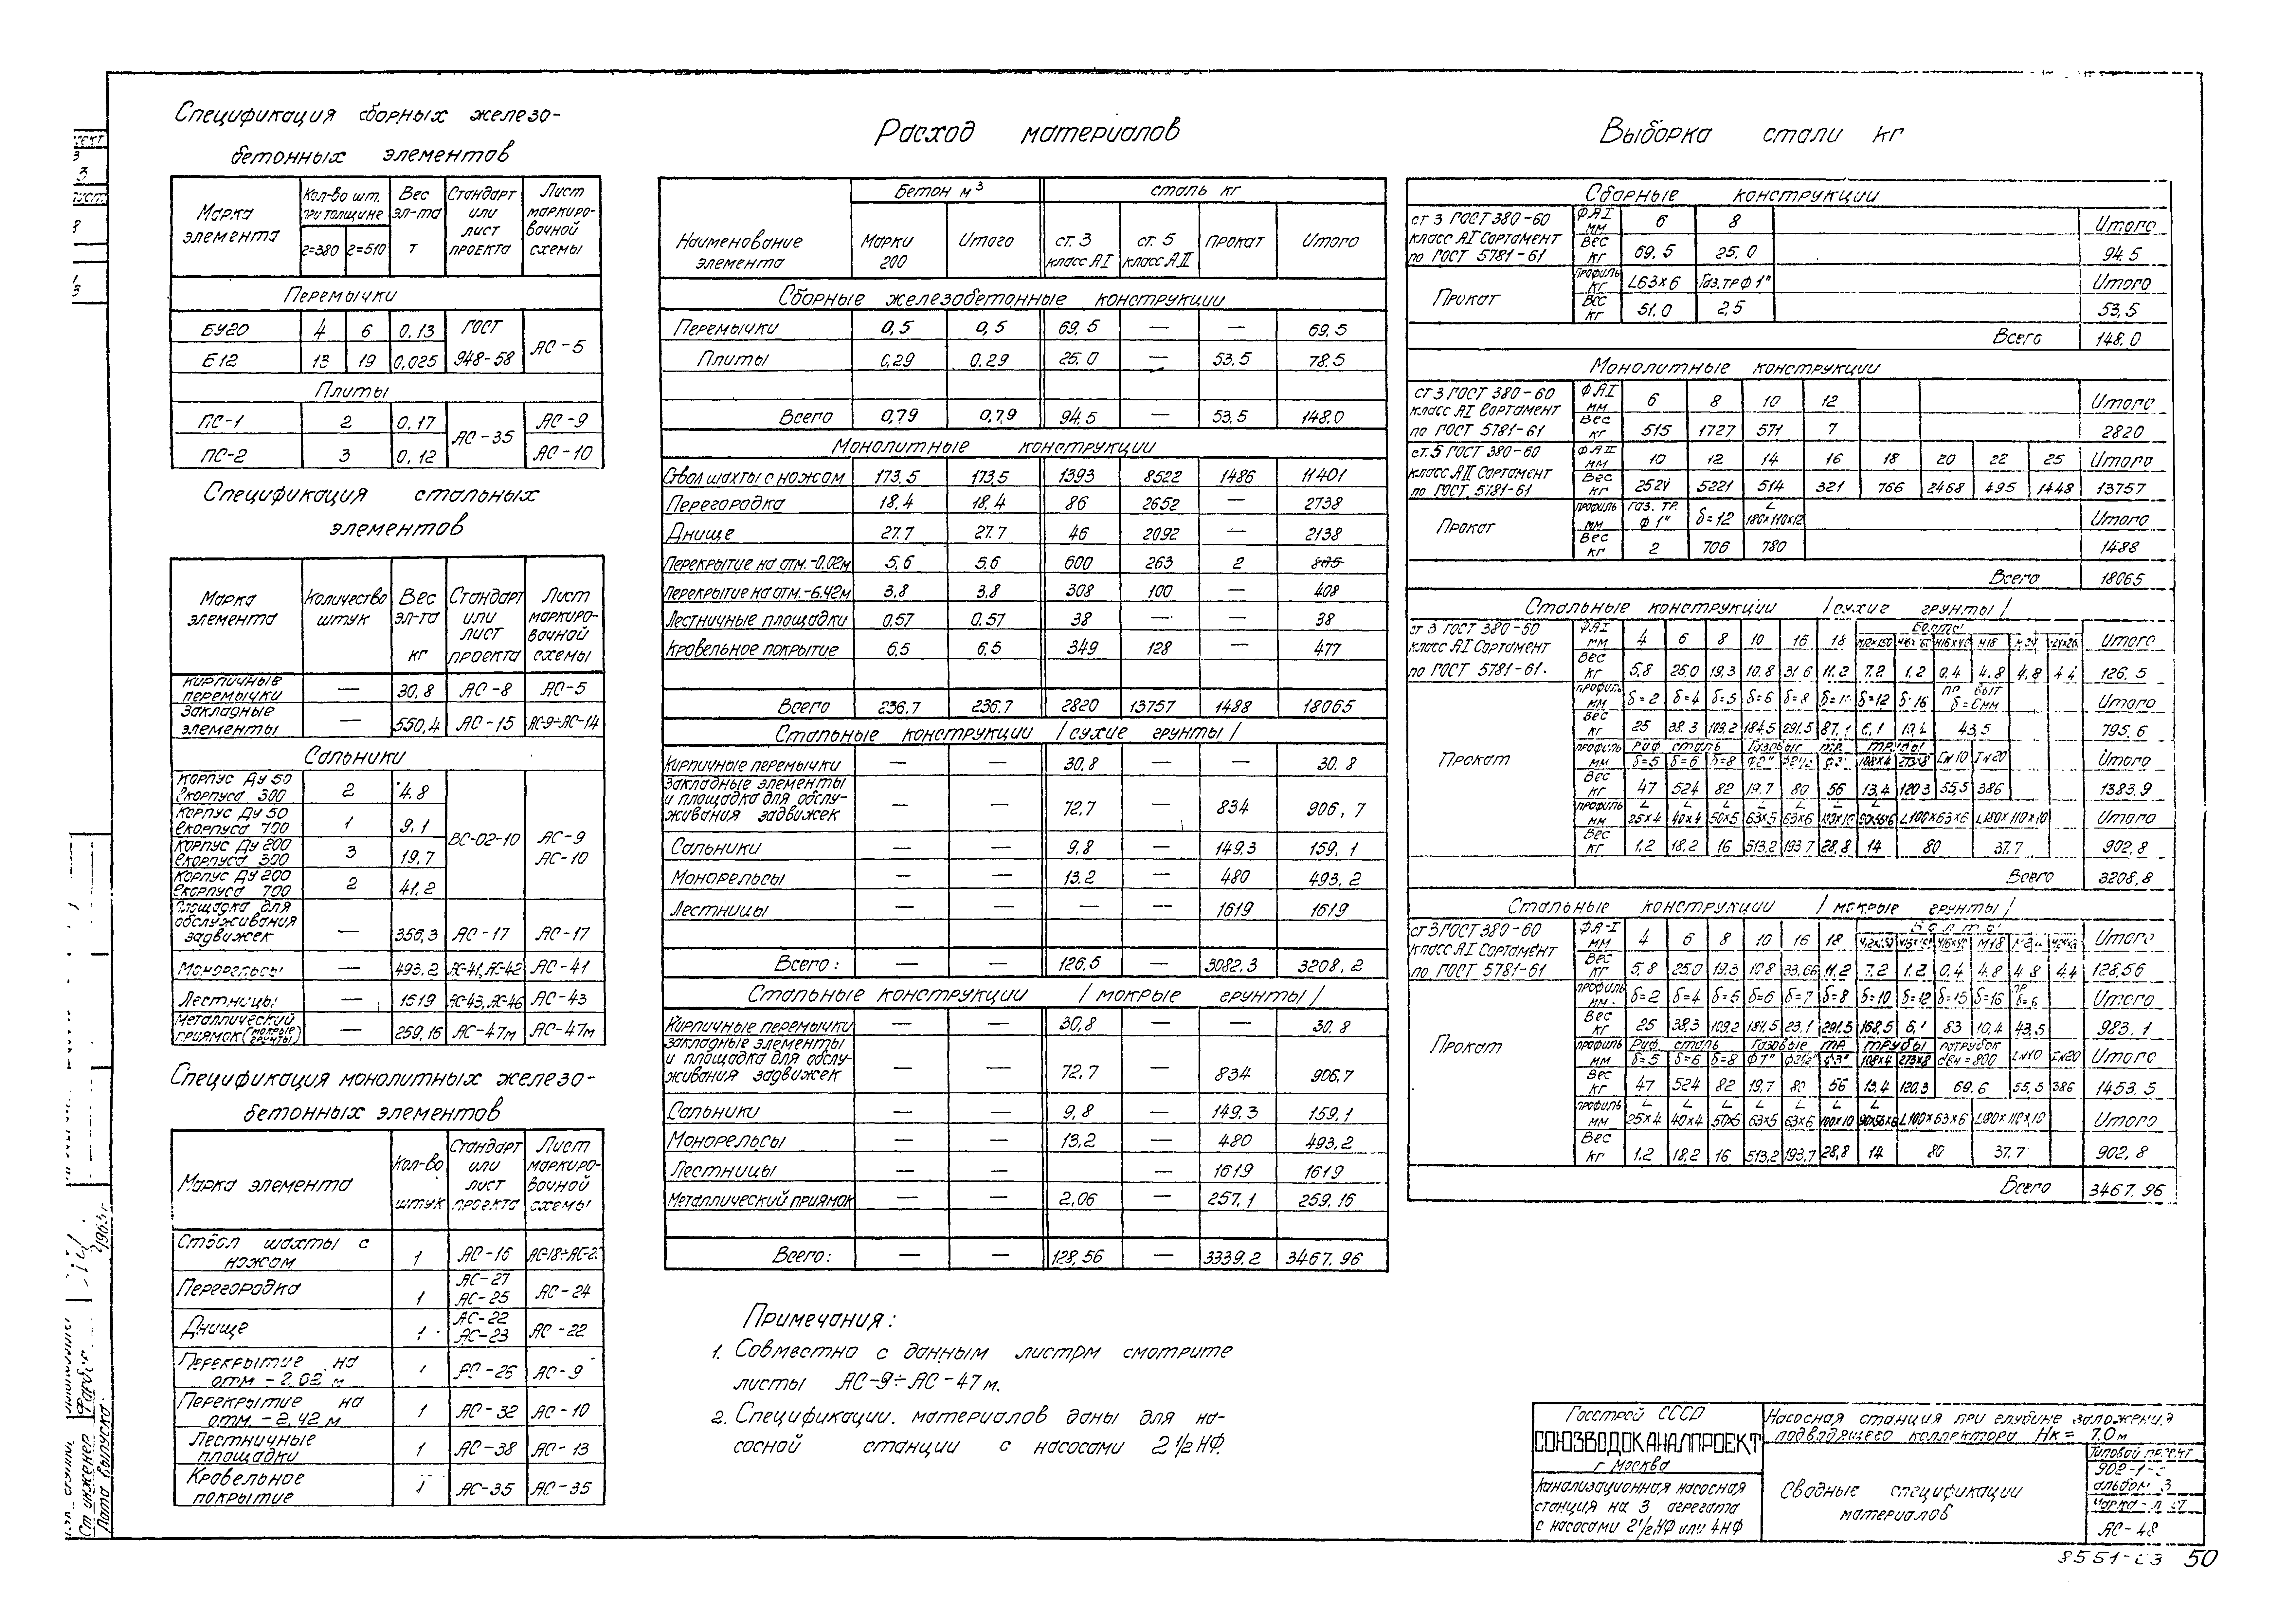 Спецификация сборных железо-
бетонных элементов
Марка элемента | Кол-во шт. при толщине | Вес эл-та т | Стандарт или лист проекта | Лист маркиро-вочной схемы
г=380 | г=510
Перемычки
БУ20 | 4 | 6 | 0,13 | ГОСТ 948-58 | АС-5
Б12 | 13 | 19 | 0,025
Плиты
ПС-1 | 2 | 0,17 | АС-35 | АС-9
ПС-2 | 3 | 0,12 | АС-10
Спецификация стальных
элементов
Марка элемента | Количество штук | Вес эл-та кг | Стандарт или лист проекта | Лист маркиро-вочной схемы
Кирпичные перемычки | — | 30,8 | АС-8 | АС-5
Закладные элементы | — | 550,4 | АС-15 | АС-9÷АС-14
Сальники
Корпус Ду 50 ℓкорпуса 300 | 2 | 4,8 | ВС-02-10 | АС-9 АС-10
Корпус Ду 50 ℓкорпуса 700 | 1 | 9,1
Корпус Ду 200 ℓкорпуса 300 | 3 | 19,7
Корпус Ду 200 ℓкорпуса 700 | 2 | 41,2
Площадка для обслуживания задвижек | — | 356,3 | АС-17 | АС-17
Монорельсы | — | 493,2 | АС-41, АС-42 | АС-41
Лестницы | — | 1619 | АС-43, АС-46 | АС-43
Металлический приямок (мокрые грунты) | — | 259,16 | АС-47м | АС-47м
Спецификация монолитных железо-
бетонных элементов
Марка элемента | Кол-во штук | Стандарт или лист проекта | Лист маркиро-вочной схемы
Ствол шахты с ножом | 1 | АС-16 | АС-18÷АС-2
Перегородка | 1 | АС-27 АС-25 | АС-24
Днище | 1 | АС-22 АС-23 | АС-22
Перекрытие на отм -2.02 м | 1 | АС-26 | АС-9
Перекрытие на отм. -2,42 м | 1 | АС-32 | АС-10
Лестничные площадки | 1 | АС-38 | АС-13
Кровельное покрытие | 1 | АС-35 | АС-35
Расход материалов
Наименование элемента | Бетон м³ | сталь кг
Марки 200 | Итого | ст. 3 класс АI | ст. 5 класс АII | Прокат | Итого
Сборные железобетонные конструкции
Перемычки | 0,5 | 0,5 | 69,5 | — | — | 69.5
Плиты | 0,29 | 0,29 | 25.0 | — | 53.5 | 78.5
Всего | 0,79 | 0,79 | 94.5 | — | 53.5 | 148.0
Монолитные конструкции
Ствол шахты с ножом | 173,5 | 173,5 | 1393 | 8522 | 1486 | 11401
Перегородка | 18,4 | 18,4 | 86 | 2652 | — | 2738
Днище | 27.7 | 27.7 | 46 | 2092 | — | 2138
Перекрытие на отм.-0.02м | 5,6 | 5,6 | 600 | 263 | 2 | 865
Перекрытие на отм.-6.42м | 3,8 | 3,8 | 308 | 100 | — | 408
Лестничные площадки | 0.57 | 0.57 | 38 | — | — | 38
Кровельное покрытие | 6,5 | 6,5 | 349 | 128 | — | 477
Всего | 236,7 | 236,7 | 2820 | 13757 | 1488 | 18065
Стальные конструкции /сухие грунты/
Кирпичные перемычки | — | — | 30,8 | — | — | 30.8
Закладные элементы и площадка для обслу-живания задвижек | — | — | 72,7 | — | 834 | 906,7
Сальники | — | — | 9,8 | — | 149.3 | 159.1
Монорельсы | — | — | 13.2 | — | 480 | 493.2
Лестницы | — | — | — | — | 1619 | 1619
Всего: | — | — | 126,5 | — | 3082,3 | 3208,2
Стальные конструкции /мокрые грунты/
Кирпичные перемычки | — | — | 30,8 | — | — | 30.8
Закладные элементы и площадка для обслу-живания задвижек | — | — | 72,7 | — | 834 | 906,7
Сальники | — | — | 9,8 | — | 149.3 | 159,1
Монорельсы | — | — | 13,2 | — | 480 | 493,2
Лестницы | — | — | — | — | 1619 | 1619
Металлический приямок | — | — | 2,06 | — | 257,1 | 259,16
Всего: | — | — | 128,56 | — | 3339,2 | 3467,96
Примечания:
1. Совместно с данным листом смотрите
листы АС-9÷АС-47м.
2. Спецификации, материалов даны для на-
сосной станции с насосами 2 1/2 НФ.
Выборка стали кг
Сборные конструкции
ст 3 ГОСТ 380-60 класс АI Сортамент по ГОСТ 5781-61 | ФАI мм | 6 | 8 | Итого
Вес кг | 69,5 | 25,0 | 94.5
Прокат | Профиль кг | L63×6 | Газ.тр ф 1" | Итого
Вес кг | 51.0 | 2,5 | 53,5
Всего | 148.0
Монолитные конструкции
ст 3 ГОСТ 380-60 класс АI Сортамент по ГОСТ 5781-61 | ФАI мм | 6 | 8 | 10 | 12 | Итого
Вес кг | 515 | 1727 | 571 | 7 | 2820
ст.5 ГОСТ 380-60 класс АII Сортамент по ГОСТ. 5781-61 | ФАII мм | 10 | 12 | 14 | 16 | 18 | 20 | 22 | 25 | Итого
Вес кг | 2524 | 5221 | 514 | 321 | 766 | 2468 | 495 | 1448 | 13757
Прокат | Профиль мм | Газ. тр. ф 1" | δ=12 | L 180×110×12 | Итого
Вес кг | 2 | 706 | 780 | 1488
Всего | 18065
Стальные конструкции /сухие грунты/
ст 3 ГОСТ 380-50 класс АI Сортамент по ГОСТ 5781-61. | ФАI мм | 4 | 6 | 8 | 10 | 16 | 18 | Болты | М12×150 | М16×40 | М18 | Итого
Вес кг | 5,8 | 25,0 | 19,3 | 10,8 | 31,6 | 11,2 | 7.2 | 1.2 | 0,4 | 4,8 | 4,8 | 4 4 | 126.5
Прокат | Профиль мм | δ=2 | δ=4 | δ=5 | δ=6 | δ=8 | δ=1 | δ=12 | δ=16 | δ=6мм | Итого
Вес кг | 25 | 38.3 | 109,2 | 184,5 | 291,5 | 87,1 | 6,1 | 10,4 | 43,5 | 795,6
Профиль мм | Риф сталь | Газовые тр. | Трубы | Итого
δ=5 | δ=6 | δ=8 | ф2" | ф2 1/2 | ф3" | 108×4 | 273×8 | IN10 | IN20
Вес кг | 47 | 524 | 82 | 19,7 | 80 | 56 | 13,4 | 120.3 | 55,5 | 386 | 1383,9
Профиль мм | L 25×4 | L 40×4 | L 50×5 | L 63×5 | L 63×6 | L 100×10 | L 90×56×6 | L100×63×6 | L180×110×10 | Итого
Вес кг | 1,2 | 18,2 | 16 | 513,2 | 193,7 | 28,8 | 14 | 80 | 37.7 | 902,8
Всего | 3208,8
Стальные конструкции /мокрые грунты/
ст 3 ГОСТ 380-60 класс АI Сортамент по ГОСТ 5781-61 | ФА-I мм | 4 | 6 | 8 | 10 | 16 | 18 | Болты | М12×150 | М16×40 | М18 | Итого
Вес кг | 5,8 | 25,0 | 19,3 | 10 8 | 33,66 | 11,2 | 7.2 | 1.2 | 0,4 | 4,8 | 4 8 | 4,4 | 128,56
Прокат | Профиль мм. | δ=2 | δ=4 | δ=5 | δ=6 | δ=7 | δ=8 | δ=10 | δ=12 | δ=15 | δ=16 | δ=6 | Итого
Вес кг | 25 | 38,3 | 109,2 | 184,5 | 23,1 | 291,5 | 168,5 | 6,1 | 83 | 10,4 | 43,5 | 983,1
Профиль мм | Риф. сталь | Газовые тр. | Трубы | патрубок | Итого
δ=5 | δ=6 | δ=8 | ф1" | ф2 1/2" | ф3" | 108×4 | 273×8 | dвн=800 | IN10 | IN20
Вес кг | 47 | 524 | 82 | 19,7 | 80 | 56 | 13.4 | 120,3 | 69,6 | 55,5 | 386 | 1453,5
Профиль мм | L 25×4 | L 40×4 | L 50×5 | L 63×5 | L 63×6 | L 100×10 | L 90×56×6 | L100×63×6 | L180×110×10 | Итого
Вес кг | 1,2 | 18,2 | 16 | 513,2 | 193,7 | 28,8 | 14 | 80 | 37.7 | 902,8
Всего | 3467.96
Госстрой СССР
СОЮЗВОДОКАНАЛПРОЕКТ
г Москва
Канализационная насосная
станция на 3 агрегата
с насосами 2 1/2 НФ или 4НФ
Насосная станция при глубине заложения
подводящего коллектора Нк = 7.0м
Сводные спецификации
материалов
Типовой проект
902-1-
альбом 3
Марка-лист
АС-48
8551-03 50
Ст инженер
Дата выпуска.
1963г